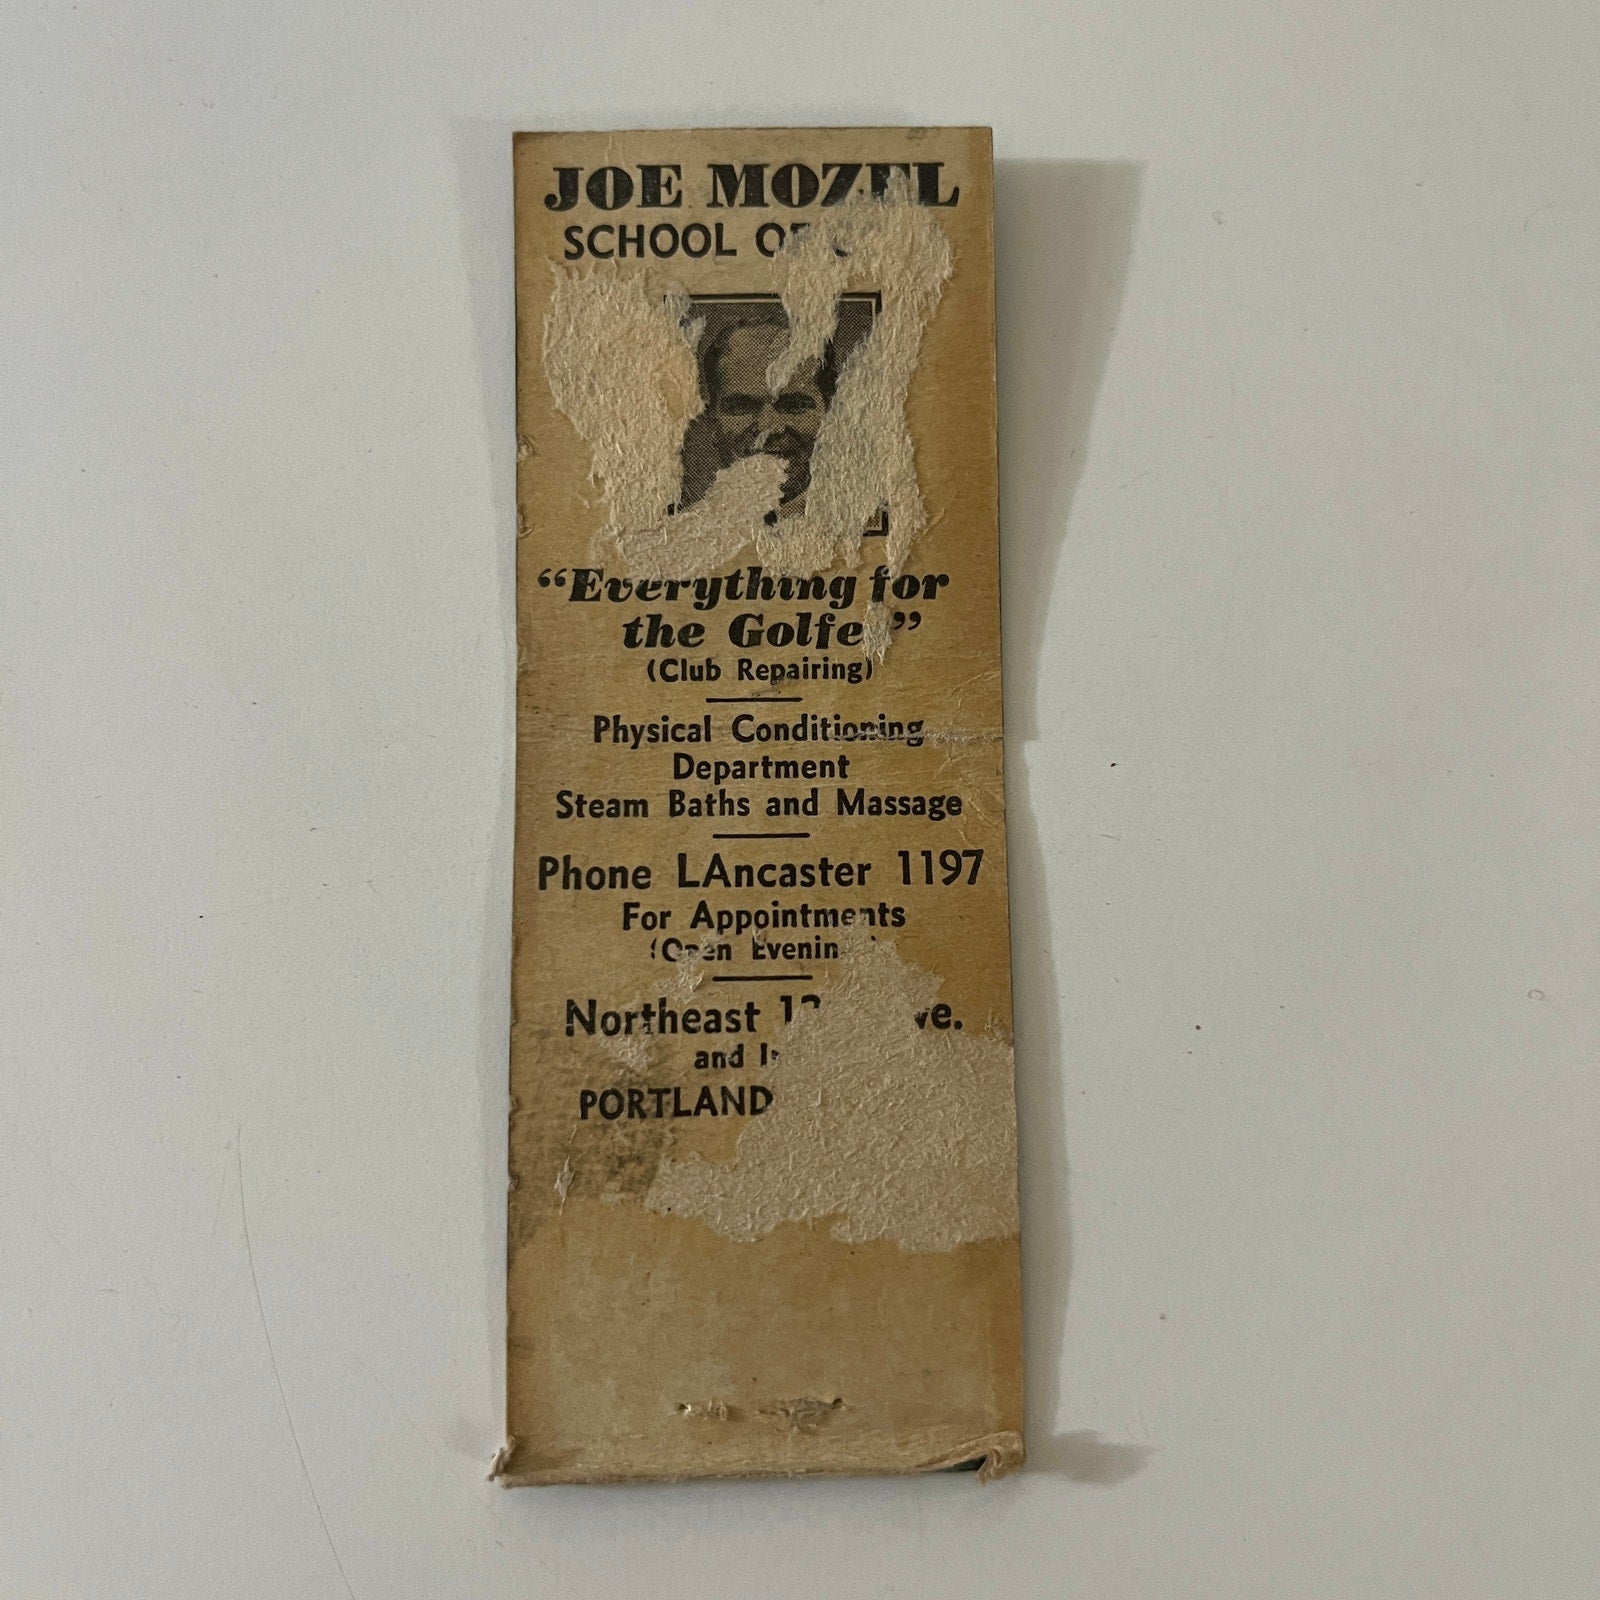 JOE MOZEL
SCHOOL OF
"Everything for
the Golfe "
(Club Repairing)
Physical Conditioning
Department
Steam Baths and Massage
Phone LAncaster 1197
For Appointments
(Open Evenin
Northeast
and
PORTLAND